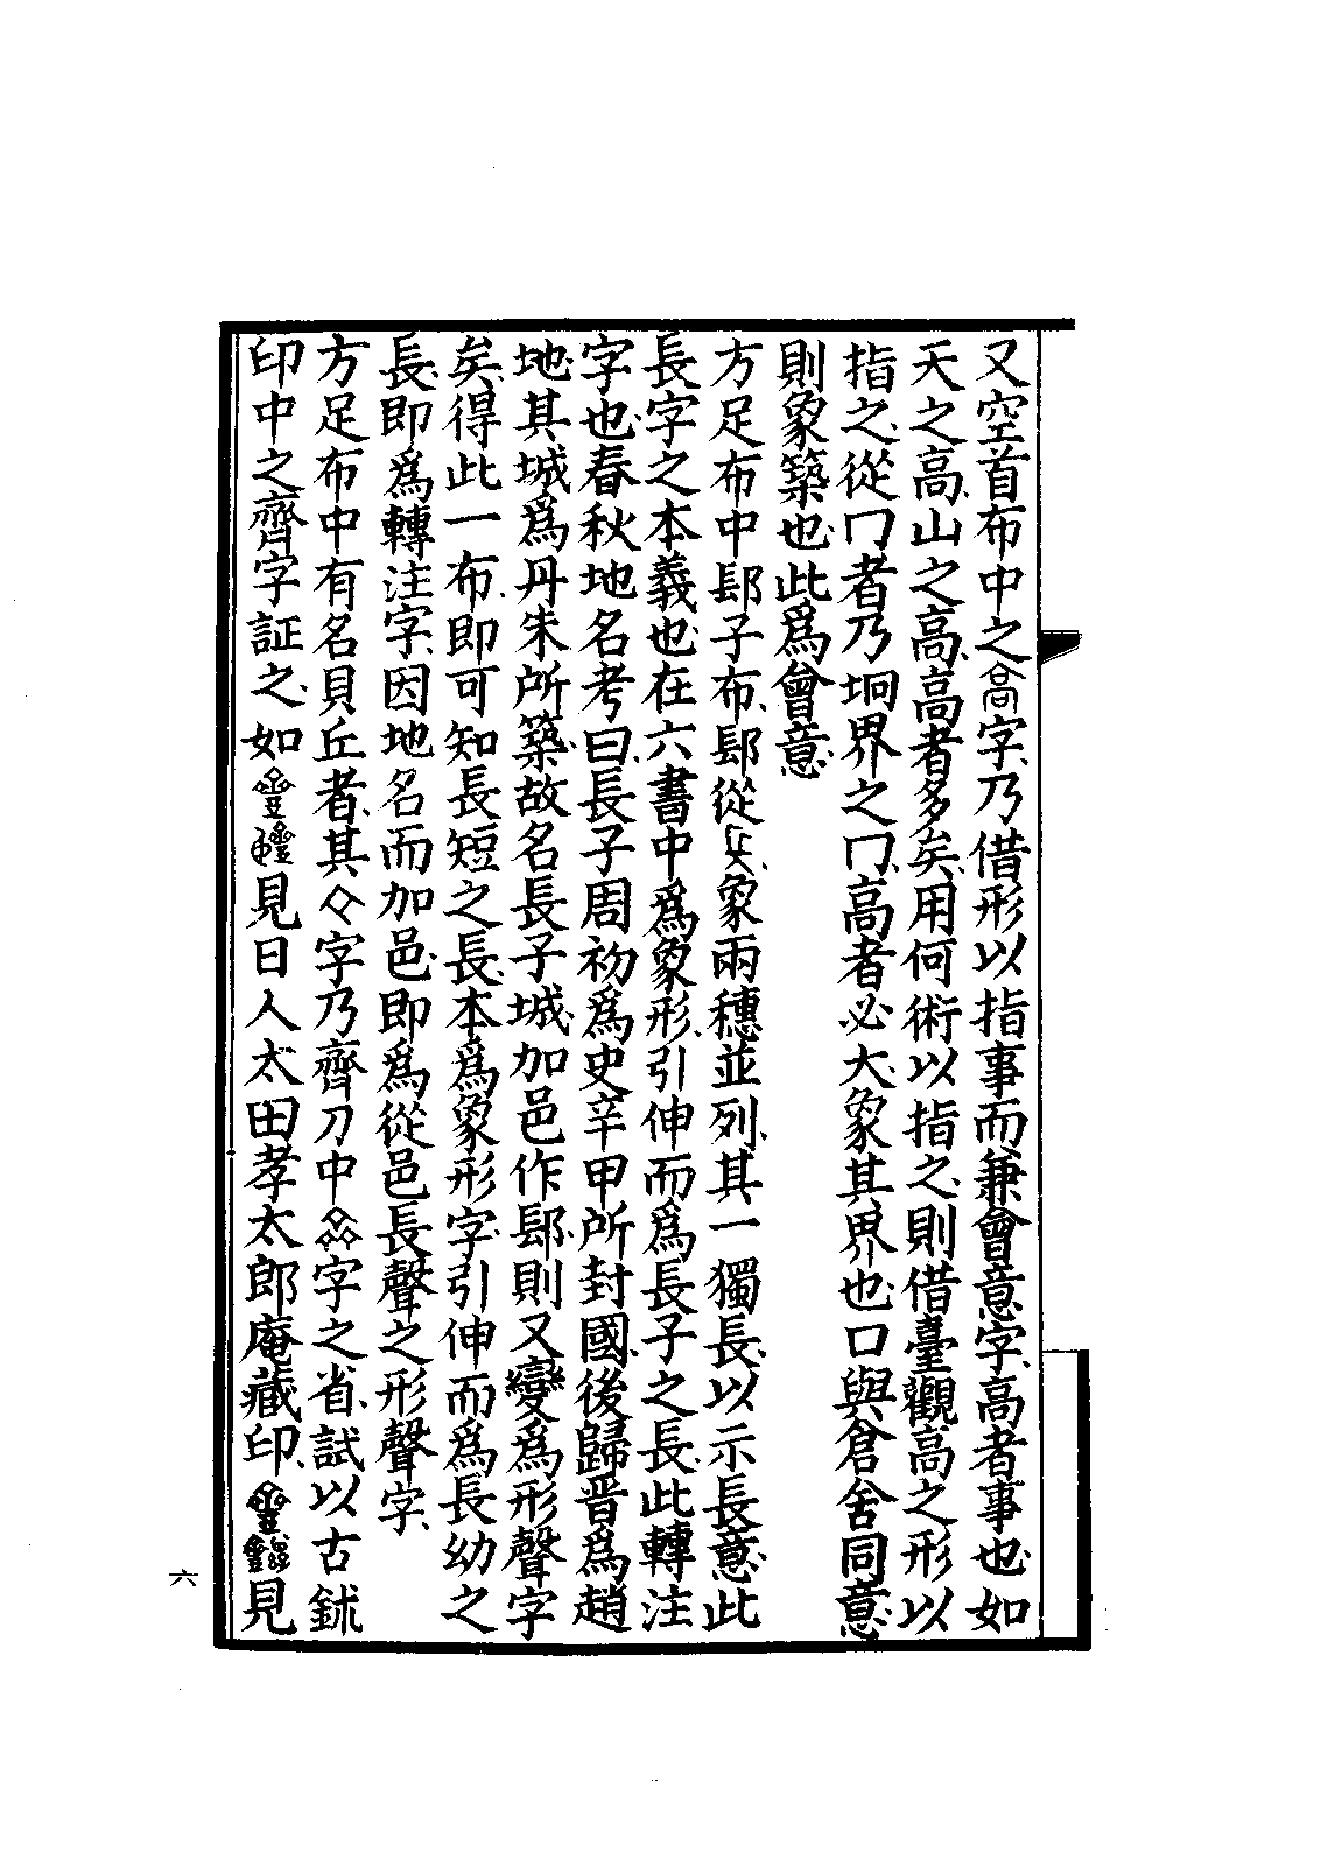 又空首布中之字、乃借形以指事而兼會意字、高者事也、如
天之高、山之高、高者多矣、用何術以指之、則借臺觀高之形以
指之、從冂者乃坰界之冂、高者必大、象其界也、口與倉舍同意、
則象築也、此爲會意、
方足布中鄥子布、從、象兩穗並列、其一獨長、以示長意、此
長字之本義也、在六書中爲象形、引伸而爲長子之長、此轉注
字也、春秋地名考曰、長子周初爲史辛甲所封國、後歸晋爲趙
地、其城爲丹朱所築、故名長子城、加邑作、則又變爲形聲字
矣、得此一布、即可知長短之長、本爲象形字、引伸而爲長幼之
長、即爲轉注字、因地名而加邑、即爲從邑長聲之形聲字、
方足布中有名貝丘者、其字乃齊刀中字之省、試以古鉥
印中之齊字証之、如見日人太田孝太郎庵藏印、見
六